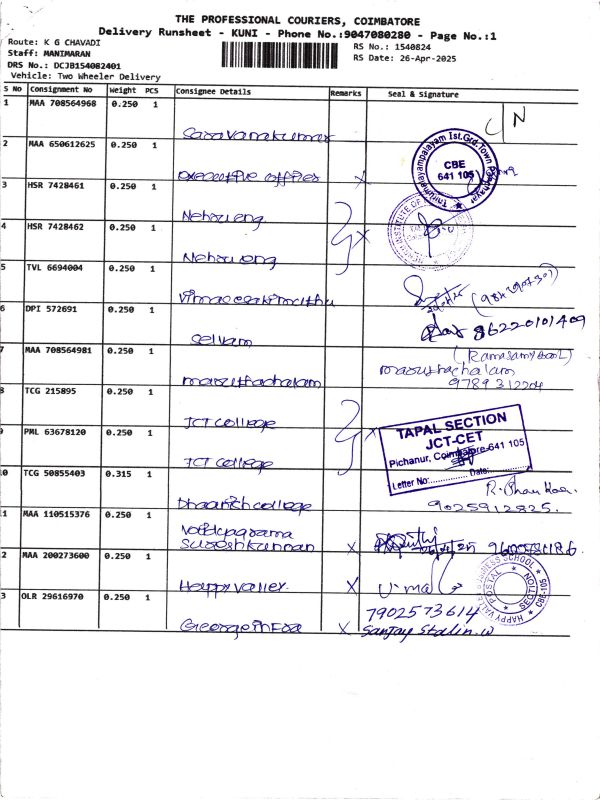 THE PROFESSIONAL COURIERS, COIMBATORE
Delivery Runsheet - KUNI - Phone No.:9047080280 - Page No.:1
Route: K G CHAVADI
Staff: MANIMARAN
DRS No.: DCJB154082401
Vehicle: Two Wheeler Delivery
RS No.: 1540824
RS Date: 26-Apr-2025
S No Consignment No Weight PCS Consignee Details Remarks Seal & Signature
1 MAA 708564968 0.250 1
Saravanakumar N
2 MAA 650612625 0.250 1
executive officer x
Thirumalayampalayam Ist.Grd.Town Panchayat
CBE
641 105
3 HSR 7428461 0.250 1
Nehru eng
4 HSR 7428462 0.250 1 x
Nehru eng
5 TVL 6694004 0.250 1
6 DPI 572691 0.250 1
Selvam 86220101409
7 MAA 708564981 0.250 1
(Ramasamy
maruthachalam maruthachalam
9789312204
8 TCG 215895 0.250 1
JCT college
9 PML 63678120 0.250 1 x
JCT college
TAPAL SECTION
JCT-CET
Pichanur, Coimbatore-641 105
Letter No: Date:
0 TCG 50855403 0.315 1
Dhaanish college
9025912825.
1 MAA 110515376 0.250 1
Sureshkannan x
2 MAA 200273600 0.250 1
Happy valley. x U.mal
HAPPY VALLEY BUSINESS SCHOOL
POSTAL SECTION
CBE-105
3 OLR 29616970 0.250 1 7902573614
x Sanjay Stalin.W